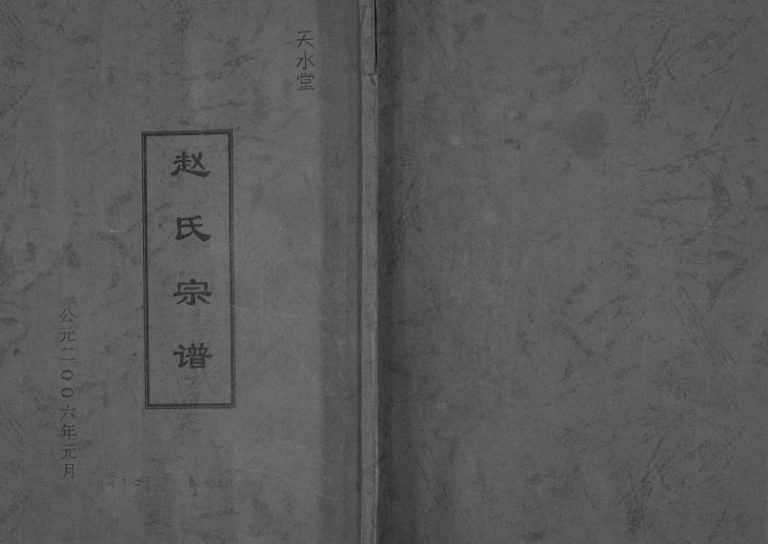 天水堂
赵氏宗谱
公元二００六年元月